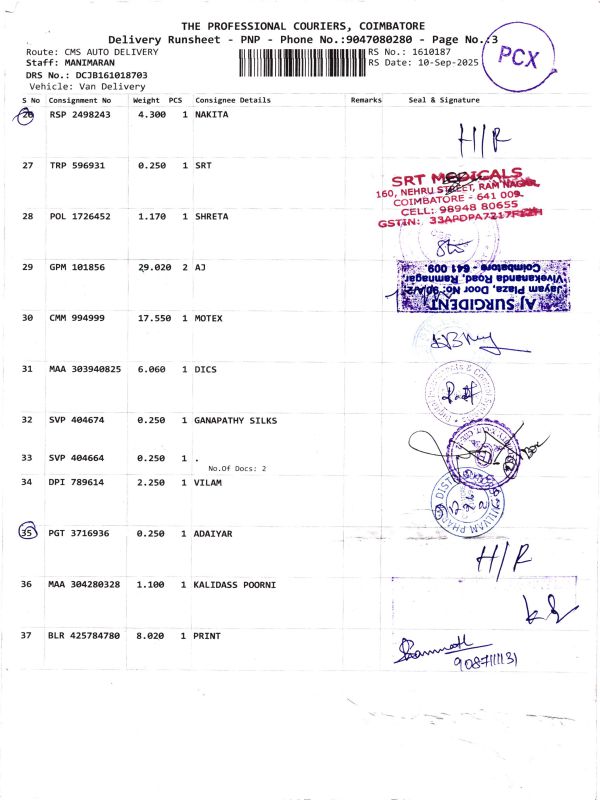 THE PROFESSIONAL COURIERS, COIMBATORE
Delivery Runsheet - PNP - Phone No.:9047080280 - Page No.:3
PCX
Route: CMS AUTO DELIVERY RS No.: 1610187
Staff: MANIMARAN RS Date: 10-Sep-2025
DRS No.: DCJB161018703
Vehicle: Van Delivery
S No Consignment No Weight PCS Consignee Details Remarks Seal & Signature
26 RSP 2498243 4.300 1 NAKITA H/R
27 TRP 596931 0.250 1 SRT
SRT MEDICALS
160, NEHRU STREET, RAM NAGAR,
COIMBATORE - 641 009.
CELL: 98948 80655
GSTIN: 33APDPA7217F1ZH
28 POL 1726452 1.170 1 SHRETA
29 GPM 101856 29.020 2 AJ
AJ SURGIDENT
Jayam Plaza, Door No.
Vivekananda Road, Ramnagar,
Coimbatore - 641 009.
30 CMM 994999 17.550 1 MOTEX
31 MAA 303940825 6.060 1 DICS
32 SVP 404674 0.250 1 GANAPATHY SILKS
33 SVP 404664 0.250 1 .
No.Of Docs: 2
34 DPI 789614 2.250 1 VILAM
35 PGT 3716936 0.250 1 ADAIYAR H/R
36 MAA 304280328 1.100 1 KALIDASS POORNI
37 BLR 425784780 8.020 1 PRINT